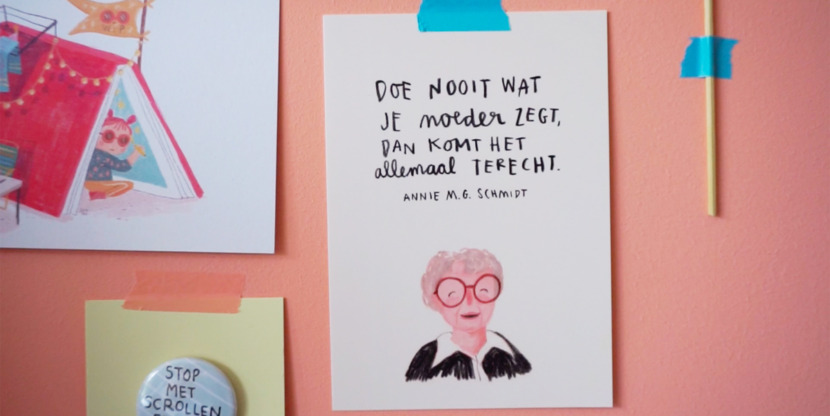 DOE NOOIT WAT
JE moeder ZEGT,
DAN KOMT HET
allemaal TERECHT.
ANNIE M.G. SCHMIDT
STOP
MET
SCROLLEN